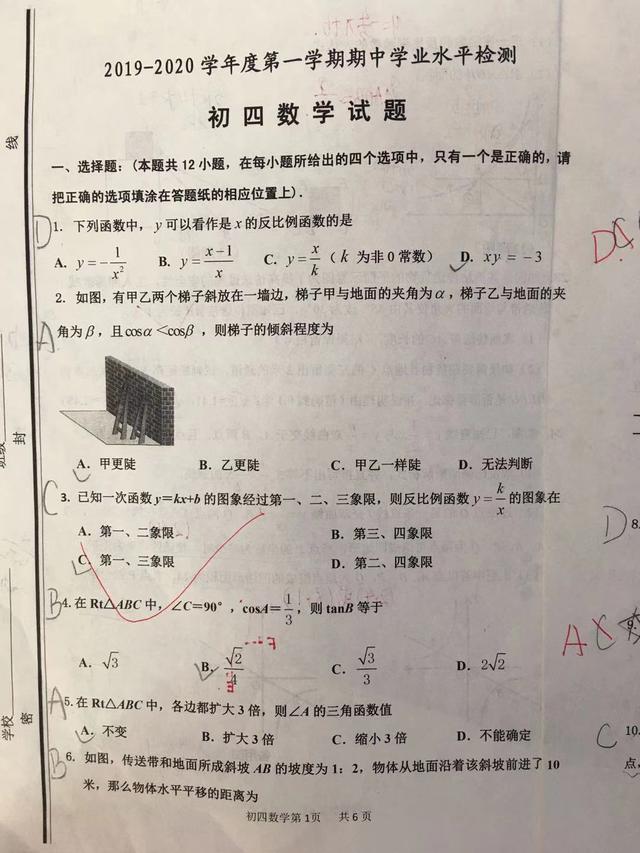 2019-2020 学年度第一学期期中学业水平检测
初四数学试题
一、选择题：(本题共 12 小题，在每小题所给出的四个选项中，只有一个是正确的，请
把正确的选项填涂在答题纸的相应位置上).
D 1. 下列函数中，y 可以看作是 x 的反比例函数的是
A. y=-1/x² B. y=(x-1)/x C. y=x/k（k 为非 0 常数） D. xy=-3
D
2. 如图，有甲乙两个梯子斜放在一墙边，梯子甲与地面的夹角为α，梯子乙与地面的夹
A 角为β，且cosα<cosβ，则梯子的倾斜程度为
A. 甲更陡 B. 乙更陡 C. 甲乙一样陡 D. 无法判断
C 3. 已知一次函数 y=kx+b 的图象经过第一、二、三象限，则反比例函数 y=k/x 的图象在
A. 第一、二象限 B. 第三、四象限
C. 第一、三象限 D. 第二、四象限
D 8.
B 4. 在 Rt△ABC 中，∠C=90°，cosA=1/3，则 tanB 等于
A
A. √3 B. √2/4 C. √3/3 D. 2√2
A 5. 在 Rt△ABC 中，各边都扩大 3 倍，则∠A 的三角函数值
A. 不变 B. 扩大 3 倍 C. 缩小 3 倍 D. 不能确定
C 10.
B 6. 如图，传送带和地面所成斜坡 AB 的坡度为 1：2，物体从地面沿着该斜坡前进了 10
点，
米，那么物体水平平移的距离为
初四数学第 1页 共 6 页
线
封
密
班级
学校